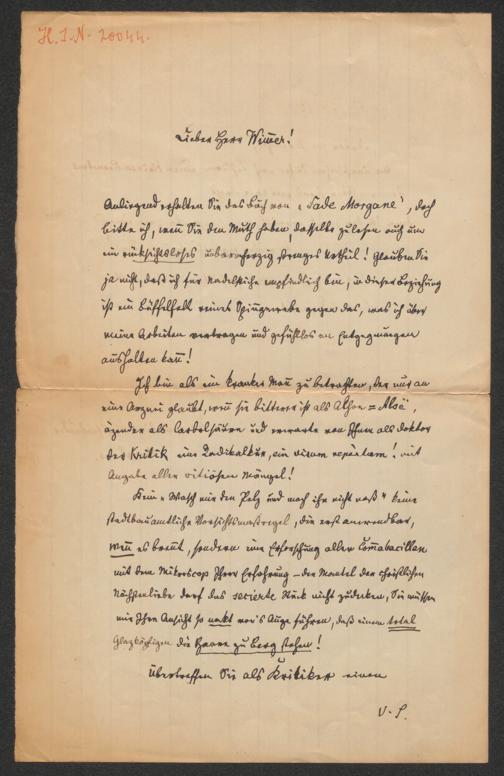 H.I.N. 20044.
Lieber Herr Wimer!
Anliegend erhalten Sie das Buch von „Fade Morgane", doch
bitte ich, wenn Sie den Muth haben, dasselbe zu lesen auch um
ein rücksichtsloses unbarmherzig strenges Urtheil! Glauben Sie
ja nicht, daß ich für Nadelstiche empfindlich bin, in dieser Beziehung
ist ein Büffelfell reines Spinngewebe gegen das, was ich über
meine Arbeiten vertragen und gefühllos an Entgegnungen
aushalten kann!
Ich bin als ein kranker Mann zu betrachten, der nur an
eine Arznei glaubt, wenn sie bitterer ist als Aloe,
ätzender als Carbolsäure und erwarte von Ihnen als Doktor
der Kritik eine Radikalkur, ein mit
Angabe aller vitiösen Mängel!
Kein „Wasch mir den Pelz und mach ihn nicht naß" keine
stadtbauamtliche Vorsichtsmaßregel, die erst anwendbar,
wenn es brennt, sondern eine Erforschung aller Commabacillen
mit dem Mikroscop Ihrer Erfahrung – der Mantel der christlichen
Nächstenliebe darf das secierte Stück nicht zudecken, Sie müssen
mir Ihre Ansicht so nakt vor's Auge führen, daß einem total
Glatzköpfigen die Haare zu Berg stehen!
Übertreffen Sie als Kritiker einen
V. S.